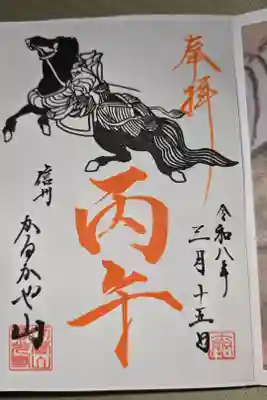 奉拝
令和八年
三月十五日
丙午
信州
かるかや山